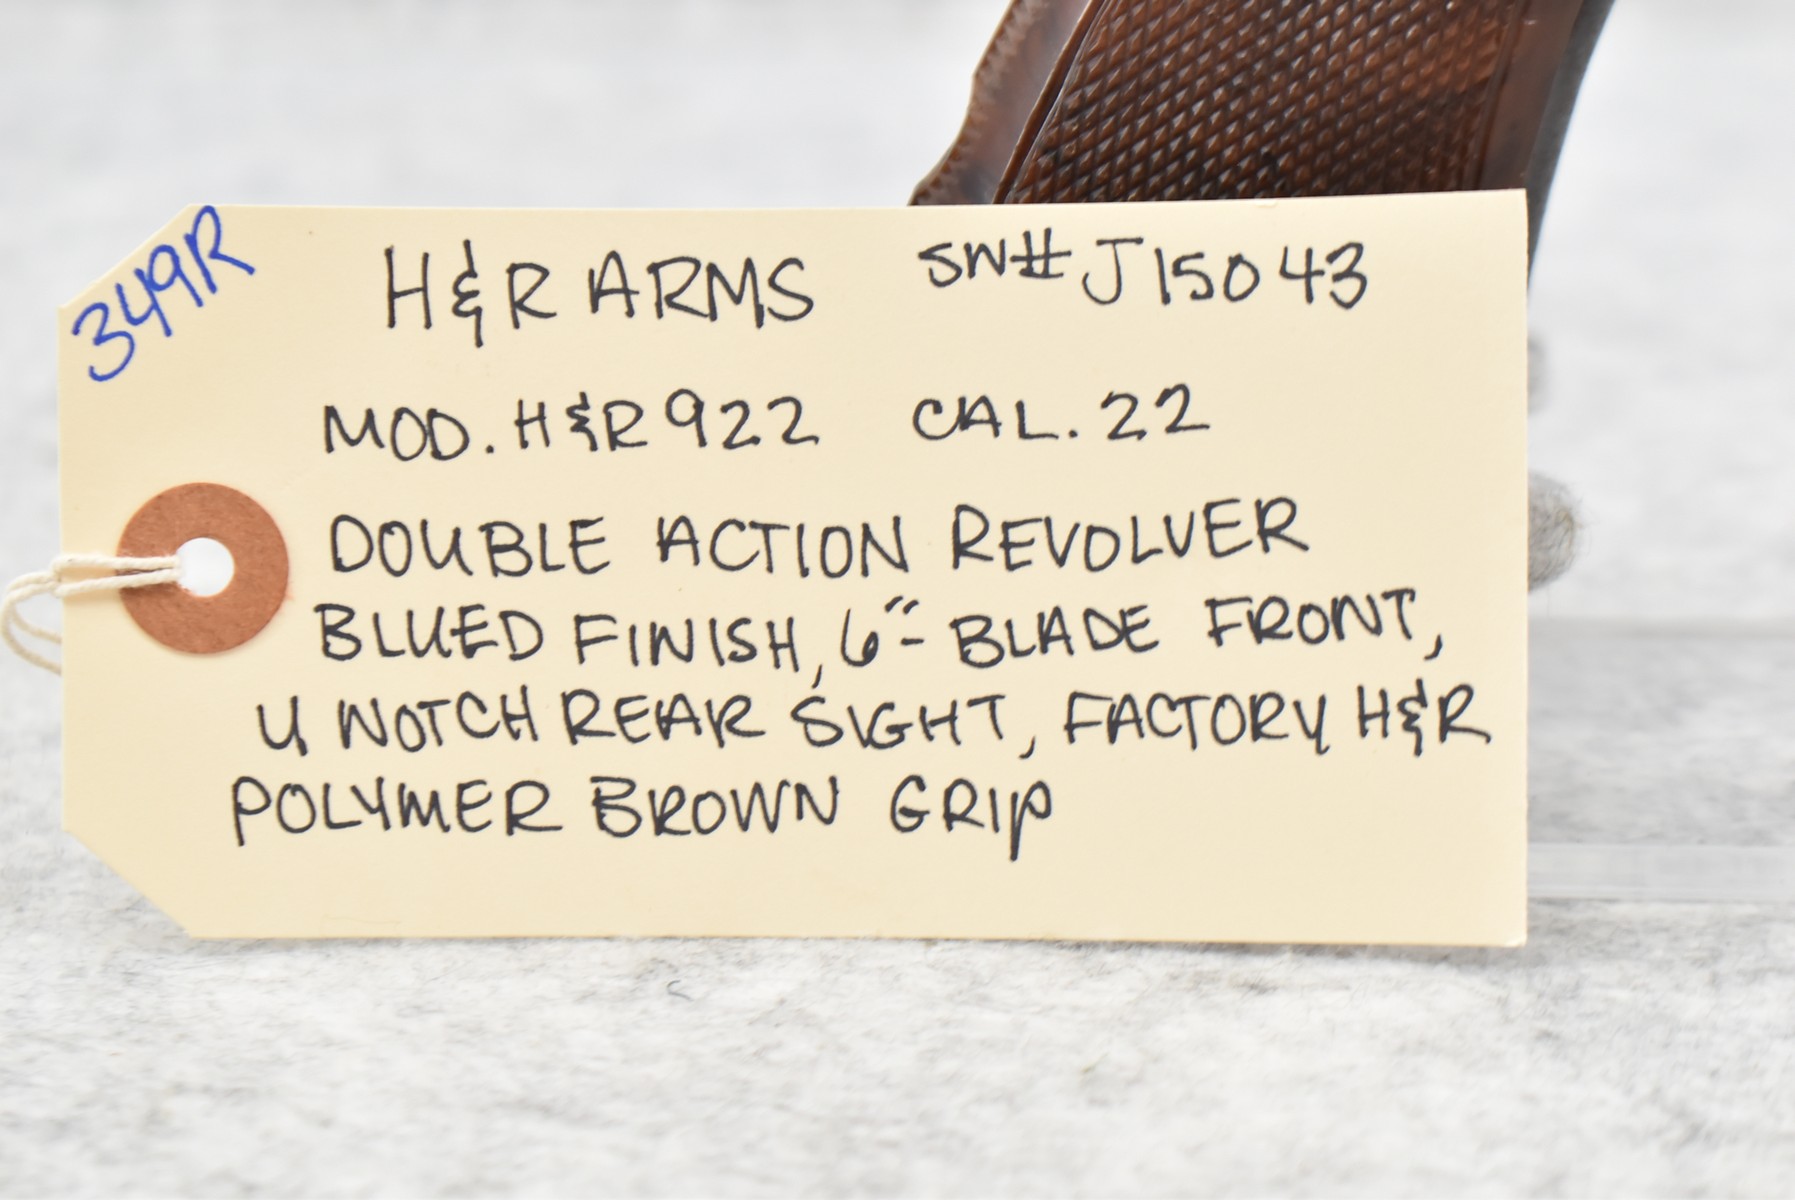 349R
H&R ARMS SN# J15043
MOD. H&R 922 CAL. 22
DOUBLE ACTION REVOLVER
BLUED FINISH, 6"- BLADE FRONT,
U NOTCH REAR SIGHT, FACTORY H&R
POLYMER BROWN GRIP